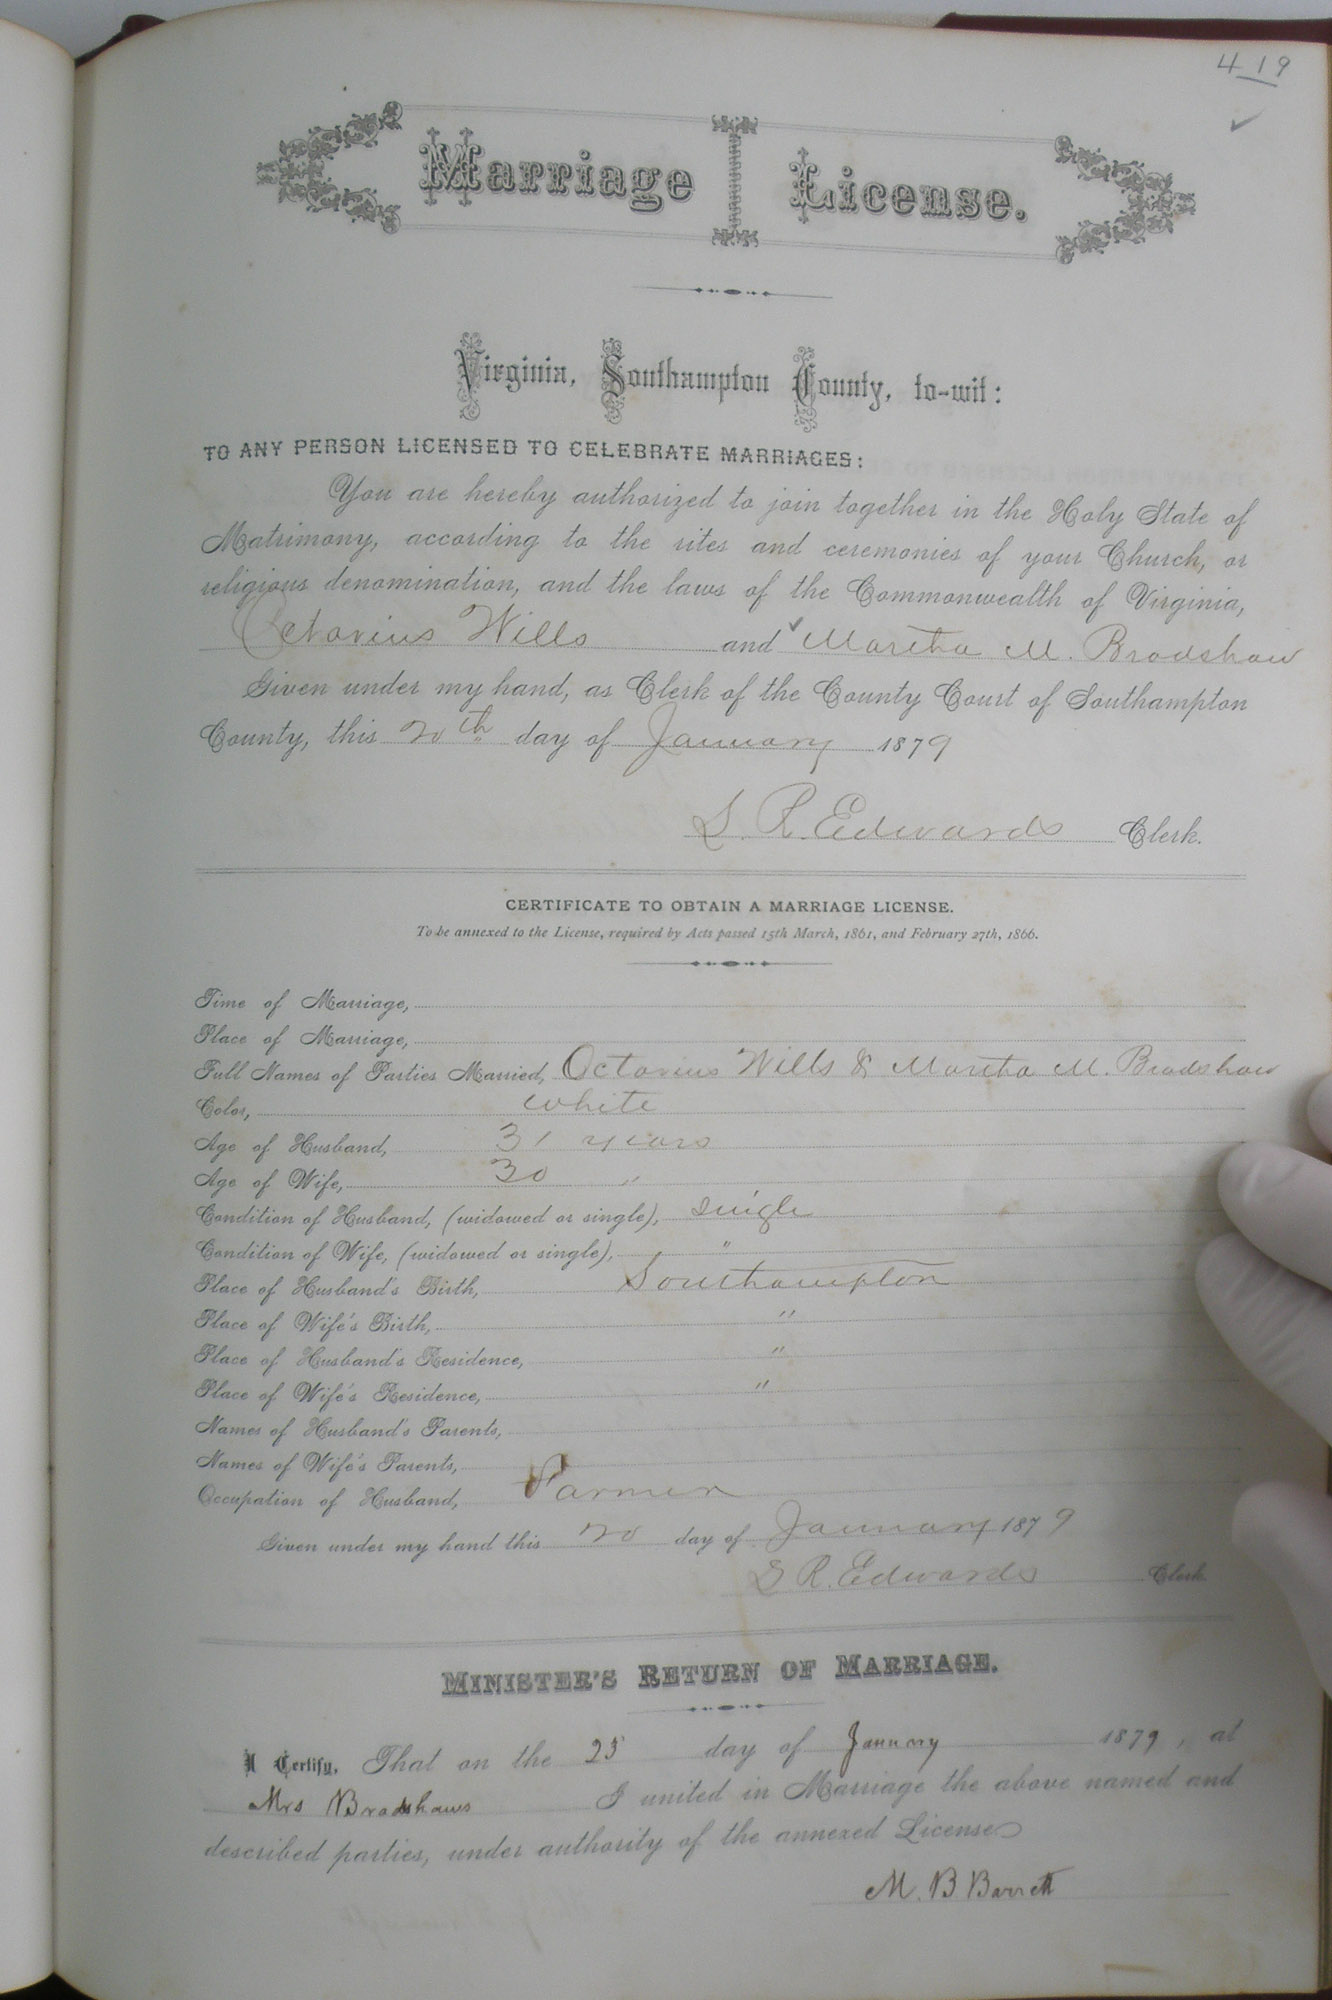 419
Marriage License.
Virginia, Southampton County, to-wit:
TO ANY PERSON LICENSED TO CELEBRATE MARRIAGES:
You are hereby authorized to join together in the Holy State of
Matrimony, according to the rites and ceremonies of your Church, or
religious denomination, and the laws of the Commonwealth of Virginia,
Octavius Wills and Martha M. Bradshaw
Given under my hand, as Clerk of the County Court of Southampton
County, this 20th day of January 1879
L. R. Edwards Clerk.
CERTIFICATE TO OBTAIN A MARRIAGE LICENSE.
To be annexed to the License, required by Acts passed 15th March, 1861, and February 27th, 1866.
Time of Marriage,
Place of Marriage,
Full Names of Parties Married, Octavius Wills & Martha M. Bradshaw
Color, white
Age of Husband, 31 years
Age of Wife, 30 "
Condition of Husband, (widowed or single), single
Condition of Wife, (widowed or single), "
Place of Husband's Birth, Southampton
Place of Wife's Birth, "
Place of Husband's Residence, "
Place of Wife's Residence, "
Names of Husband's Parents,
Names of Wife's Parents,
Occupation of Husband, Farmer
Given under my hand this 20 day of January 1879
L R. Edwards Clerk.
MINISTER'S RETURN OF MARRIAGE.
I Certify, That on the 25 day of January 1879, at
Mrs Bradshaws I united in Marriage the above named and
described parties, under authority of the annexed License
M. B Barrett